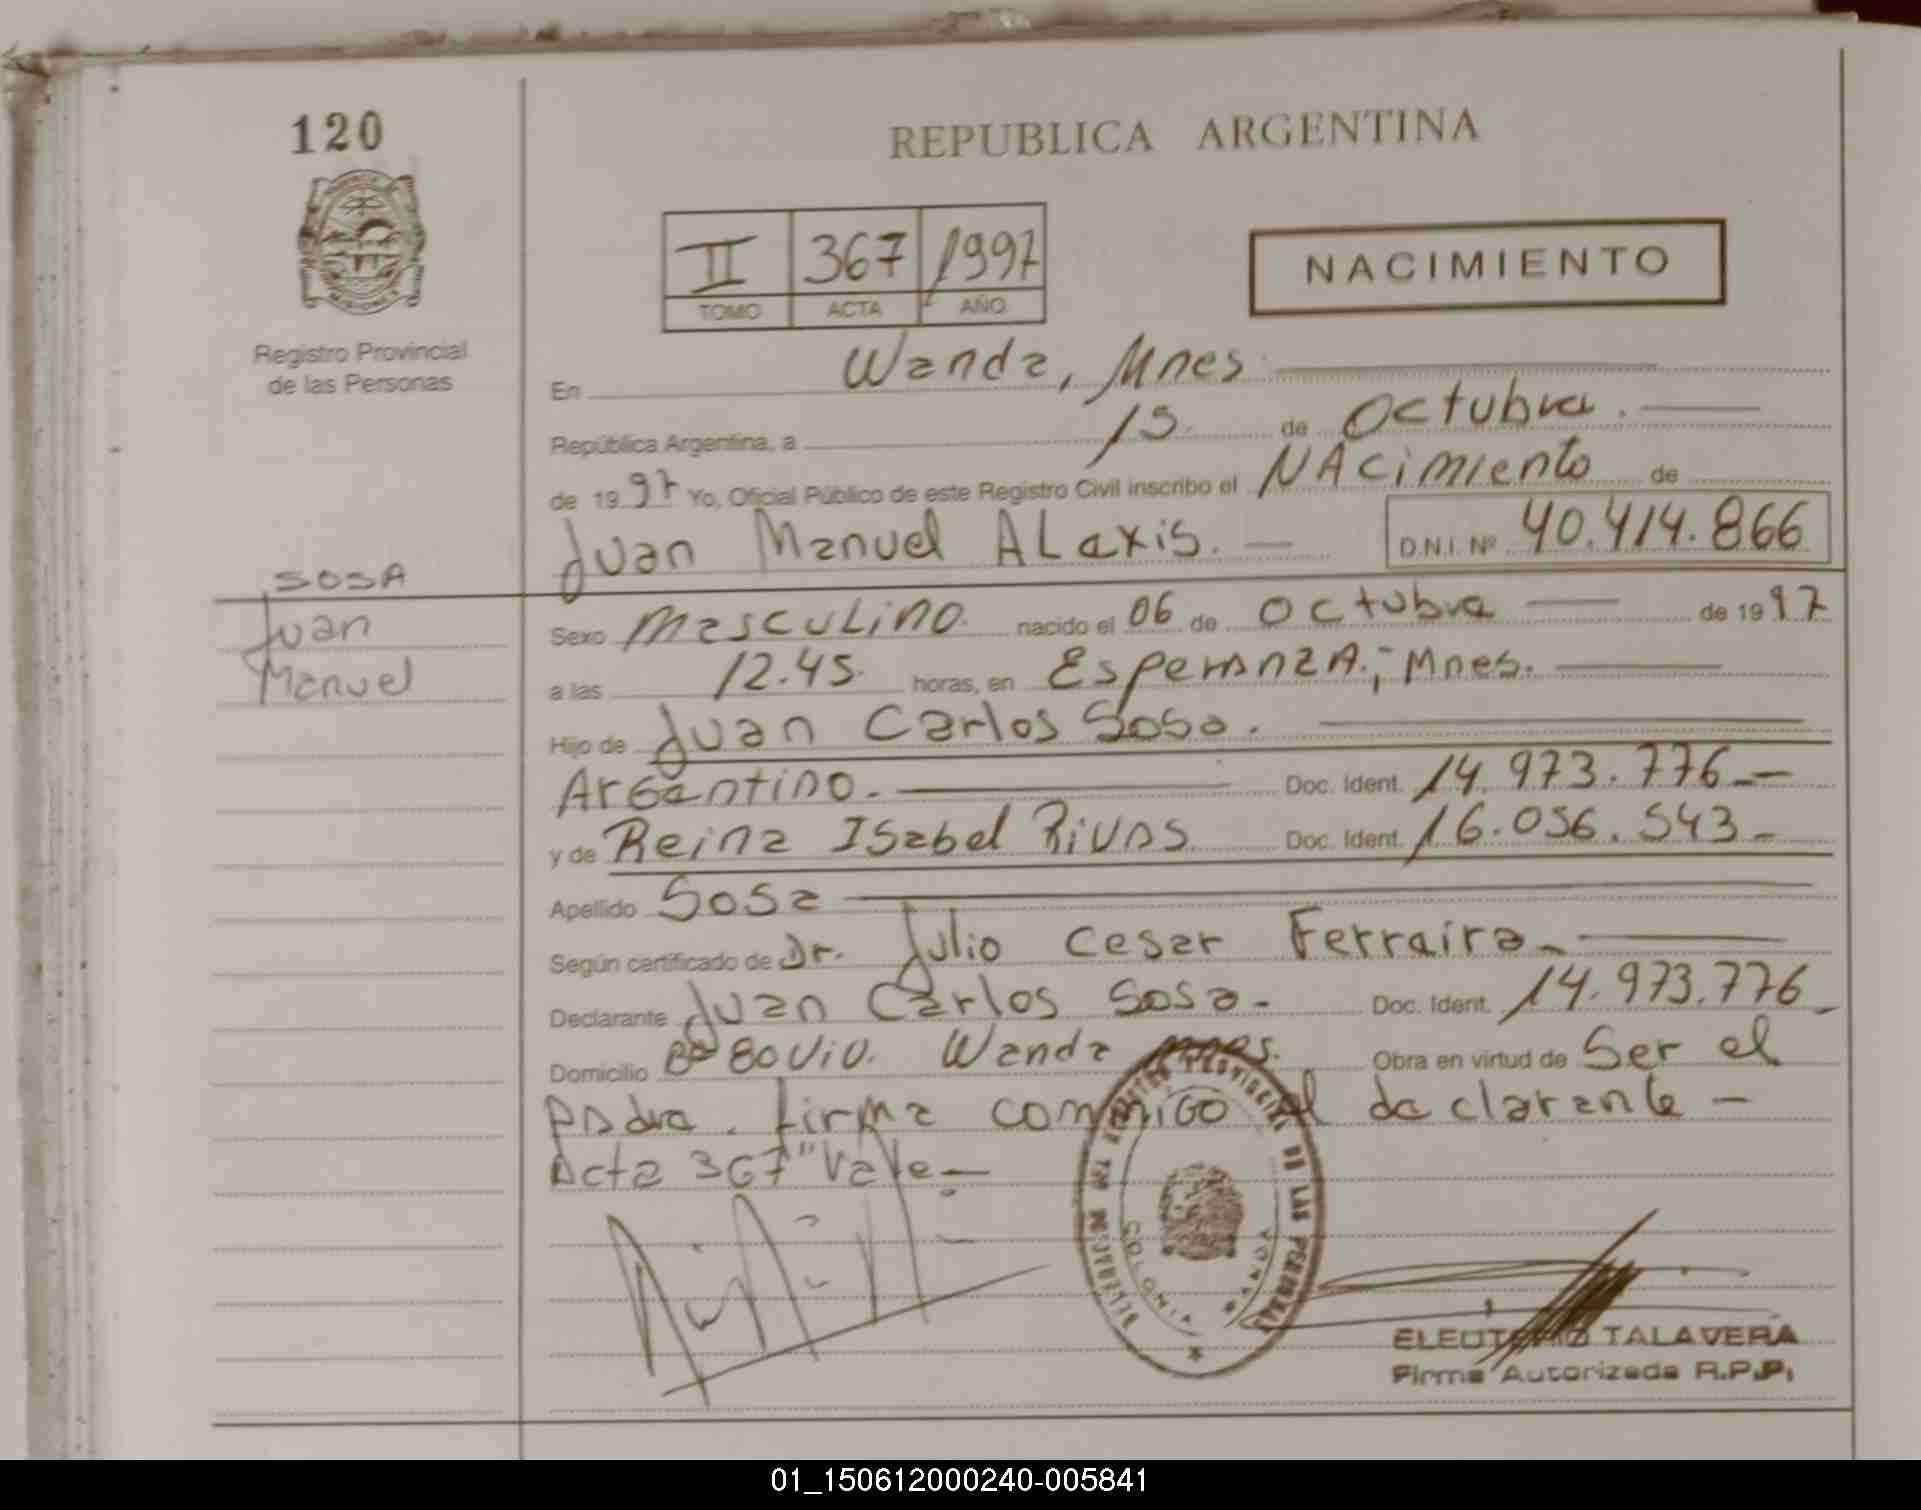 120
REPUBLICA ARGENTINA
II 367 1997
TOMO ACTA AÑO
NACIMIENTO
Registro Provincial
de las Personas
En Wanda, Mnes.
República Argentina, a 15 de Octubre.
de 1997 Yo, Oficial Público de este Registro Civil inscribo el NAcimiento de
Juan Manuel ALexis. D.N.I. Nº 40.414.866
SOSA
Juan
Manuel
Sexo Masculino. nacido el 06 de Octubre de 1997
a las 12.45. horas, en EsperanzA.; Mnes.
Hijo de Juan Carlos Sosa.
Argentino. Doc. Ident. 14.973.776
y de Reina Isabel Rivas Doc. Ident. 16.056.543
Apellido Sosa
Según certificado de Dr. Julio Cesar Ferraira
Declarante Juan Carlos Sosa Doc. Ident. 14.973.776
Domicilio Bº 80 Viv. Wanda Mnes. Obra en virtud de Ser el
padre. firma conmigo el declarante
Acta 367" Vale
REGISTRO PROVINCIAL DE LAS PERSONAS
COLONIA WANDA
ELEUTERIO TALAVERA
Firma Autorizada R.P.P.
01_150612000240-005841